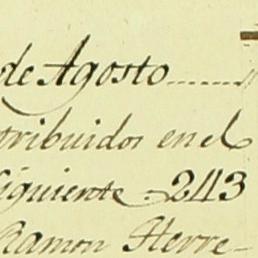 de Agosto........
tribuidos en el
siguiente . 243
Ramon Herre-